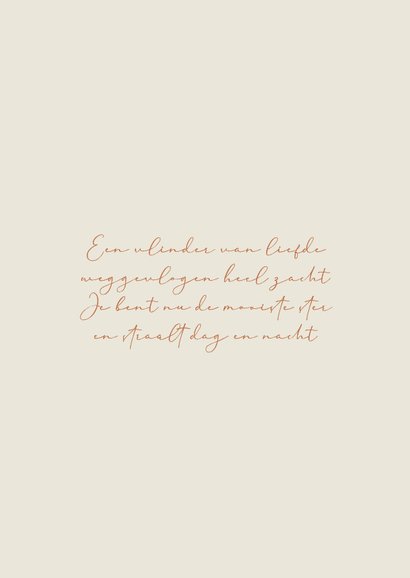 Een vlinder van liefde
weggevlogen heel zacht
Je bent nu de mooiste ster
en straalt dag en nacht